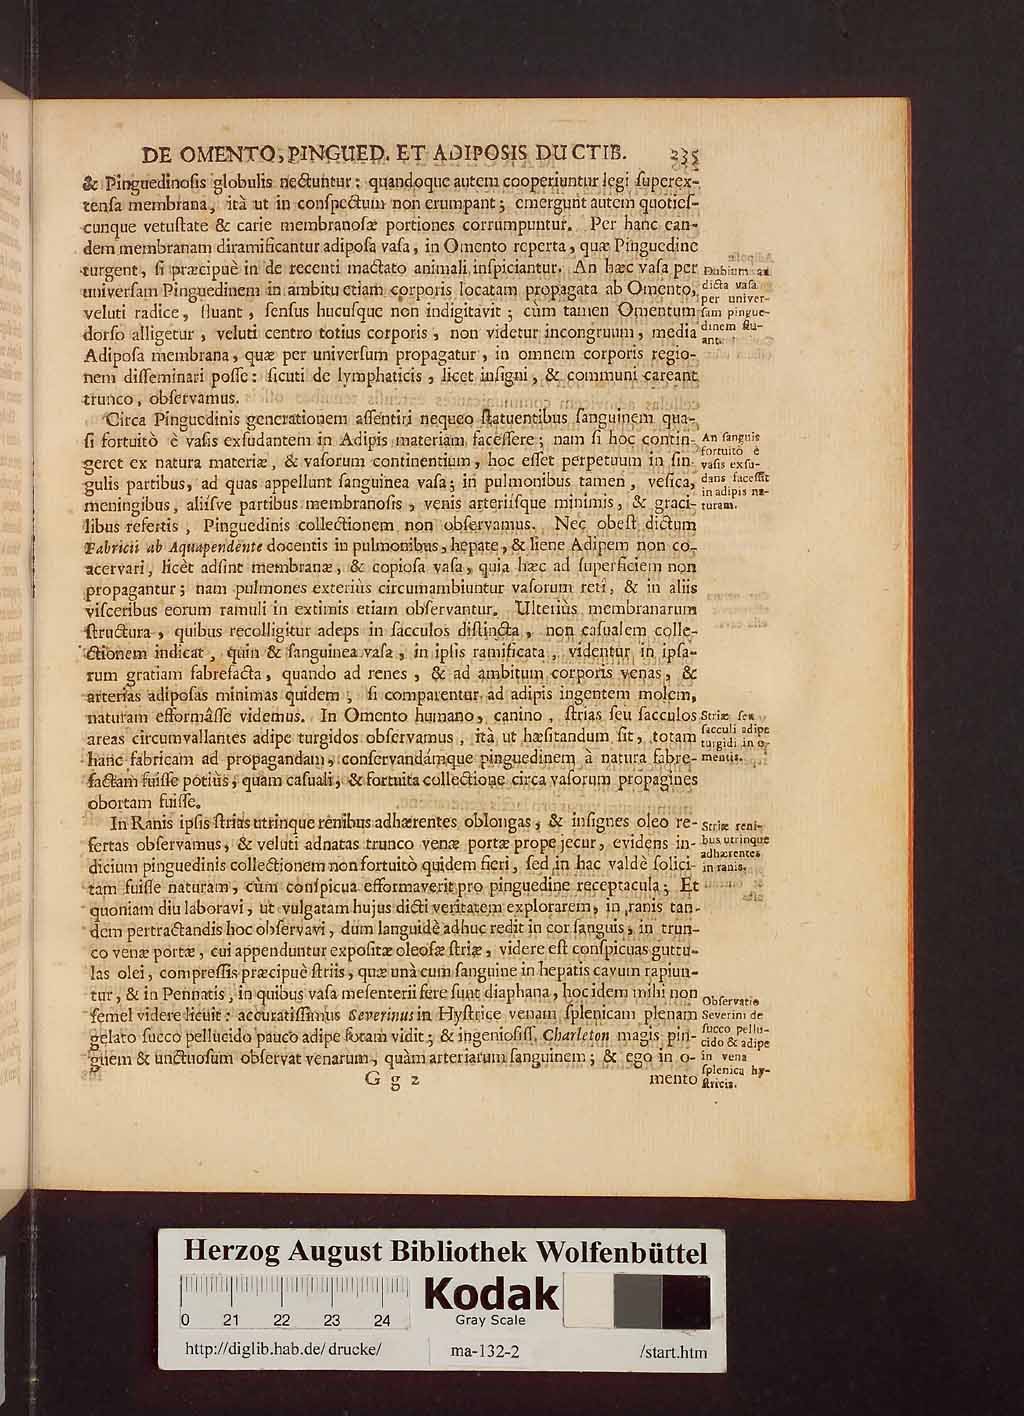 DE OMENTO, PINGUED. ET ADIPOSIS DUCTIB. 235
& Pinguedinosis globulis nectuntur: quandoque autem cooperiuntur legi superex-
tensa membrana, ità ut in conspectum non erumpant; emergunt autem quoties-
cunque vetustate & carie membranosæ portiones corrumpuntur. Per hanc ean-
dem membranam diramificantur adiposa vasa, in Omento reperta, quæ Pinguedine
turgent, si præcipuè in de recenti mactato animali inspiciantur. An hæc vasa per
universam Pinguedinem in ambitu etiam corporis locatam propagata ab Omento,
veluti radice, fluant, sensus hucusque non indigitavit; cùm tamen Omentum
dorso alligetur, veluti centro totius corporis, non videtur incongruum, media
Adiposa membrana, quæ per universum propagatur, in omnem corporis regio-
nem disseminari posse: sicuti de lymphaticis, licet insigni, & communi careant
trunco, observamus.
Dubium an
dicta vasa
per univer-
sam pingue-
dinem flu-
ant.
Circa Pinguedinis generationem assentiri nequeo statuentibus sanguinem qua-
si fortuitò è vasis exsudantem in Adipis materiam facessere; nam si hoc contin-
geret ex natura materiæ, & vasorum continentium, hoc esset perpetuum in sin-
gulis partibus, ad quas appellunt sanguinea vasa; in pulmonibus tamen, vesica,
meningibus, aliisve partibus membranosis, venis arteriisque minimis, & graci-
libus refertis, Pinguedinis collectionem non observamus. Nec obest dictum
Fabricii ab Aquapendente docentis in pulmonibus, hepate, & liene Adipem non co-
acervari, licèt adsint membranæ, & copiosa vasa, quia hæc ad superficiem non
propagantur; nam pulmones exteriùs circumambiuntur vasorum reti, & in aliis
visceribus eorum ramuli in extimis etiam observantur. Ulteriùs membranarum
structura, quibus recolligitur adeps in sacculos distincta, non casualem colle-
ctionem indicat, quin & sanguinea vasa, in ipsis ramificata, videntur in ipsa-
rum gratiam fabrefacta, quando ad renes, & ad ambitum corporis venas, &
arterias adiposas minimas quidem, si comparentur ad adipis ingentem molem,
naturam efformâsse videmus. In Omento humano, canino, strias seu sacculos
areas circumvallantes adipe turgidos observamus, ità ut hæsitandum sit, totam
hanc fabricam ad propagandam, conservandámque pinguedinem à natura fabre-
factam fuisse potiùs, quàm casuali, & fortuita collectione circa vasorum propagines
obortam fuisse.
An sanguis
fortuitò è
vasis exsu-
dans facessit
in adipis na-
turam.
Striæ seu
sacculi adipe
turgidi in o-
mentis.
In Ranis ipsis strias utrinque rénibus adhærentes oblongas, & insignes oleo re-
fertas observamus, & veluti adnatas trunco venæ portæ prope jecur, evidens in-
dicium pinguedinis collectionem non fortuitò quidem fieri, sed in hac valdè solici-
tam fuisse naturam, cùm conspicua efformaverit pro pinguedine receptacula; Et
quoniam diu laboravi, ut vulgatam hujus dicti veritatem explorarem, in ranis tan-
dem pertractandis hoc observavi, dum languidè adhuc redit in cor sanguis, in trun-
co venæ portæ, cui appenduntur expositæ oleosæ striæ, videre est conspicuas guttu-
las olei, compressis præcipuè striis, quæ unà cum sanguine in hepatis cavum rapiun-
tur, & in Pennatis, in quibus vasa mesenterii fere sunt diaphana, hoc idem mihi non
semel videre licuit: accuratissimus Severinus in Hystrice venam splenicam plenam
gelato succo pellucido pauco adipe fotam vidit; & ingeniosiss. Charleton magis pin-
guem & unctuosum observat venarum, quàm arteriarum sanguinem; & ego in o-
Striæ reni-
bus utrinque
adhærentes
in ranis.
Observatio
Severini de
succo pellu-
cido & adipe
in vena
splenica hy-
stricis.
Gg 2 mento
Herzog August Bibliothek Wolfenbüttel
0 21 22 23 24
Kodak
Gray Scale
http://diglib.hab.de/drucke/ ma-132-2 /start.htm